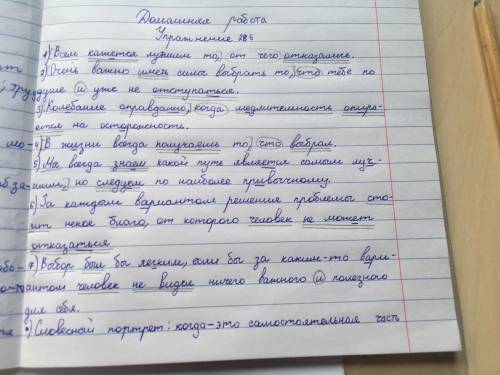 Домашняя работа
Упражнение 285
1) Всем кажется лучшим то, от чего отказались.
2) Очень важно иметь силы выбрать то, что тебе по
душе и уже не отступаться.
3) Колебание оправданно, когда медлительность опира-
ется на осторожность.
4) В жизни всегда получаешь то, что выбрал.
5) Мы всегда знаем какой путь является самым луч-
шим, но следуем по наиболее привычному.
6) За каждым вариантом решения проблемы сто-
ит некое благо, от которого человек не может
отказаться.
7) Выбор был бы легким, если бы за каким-то вари-
антом человек не видел ничего важного и полезного
для себя.
•) Словесный портрет: когда-это самостоятельная часть